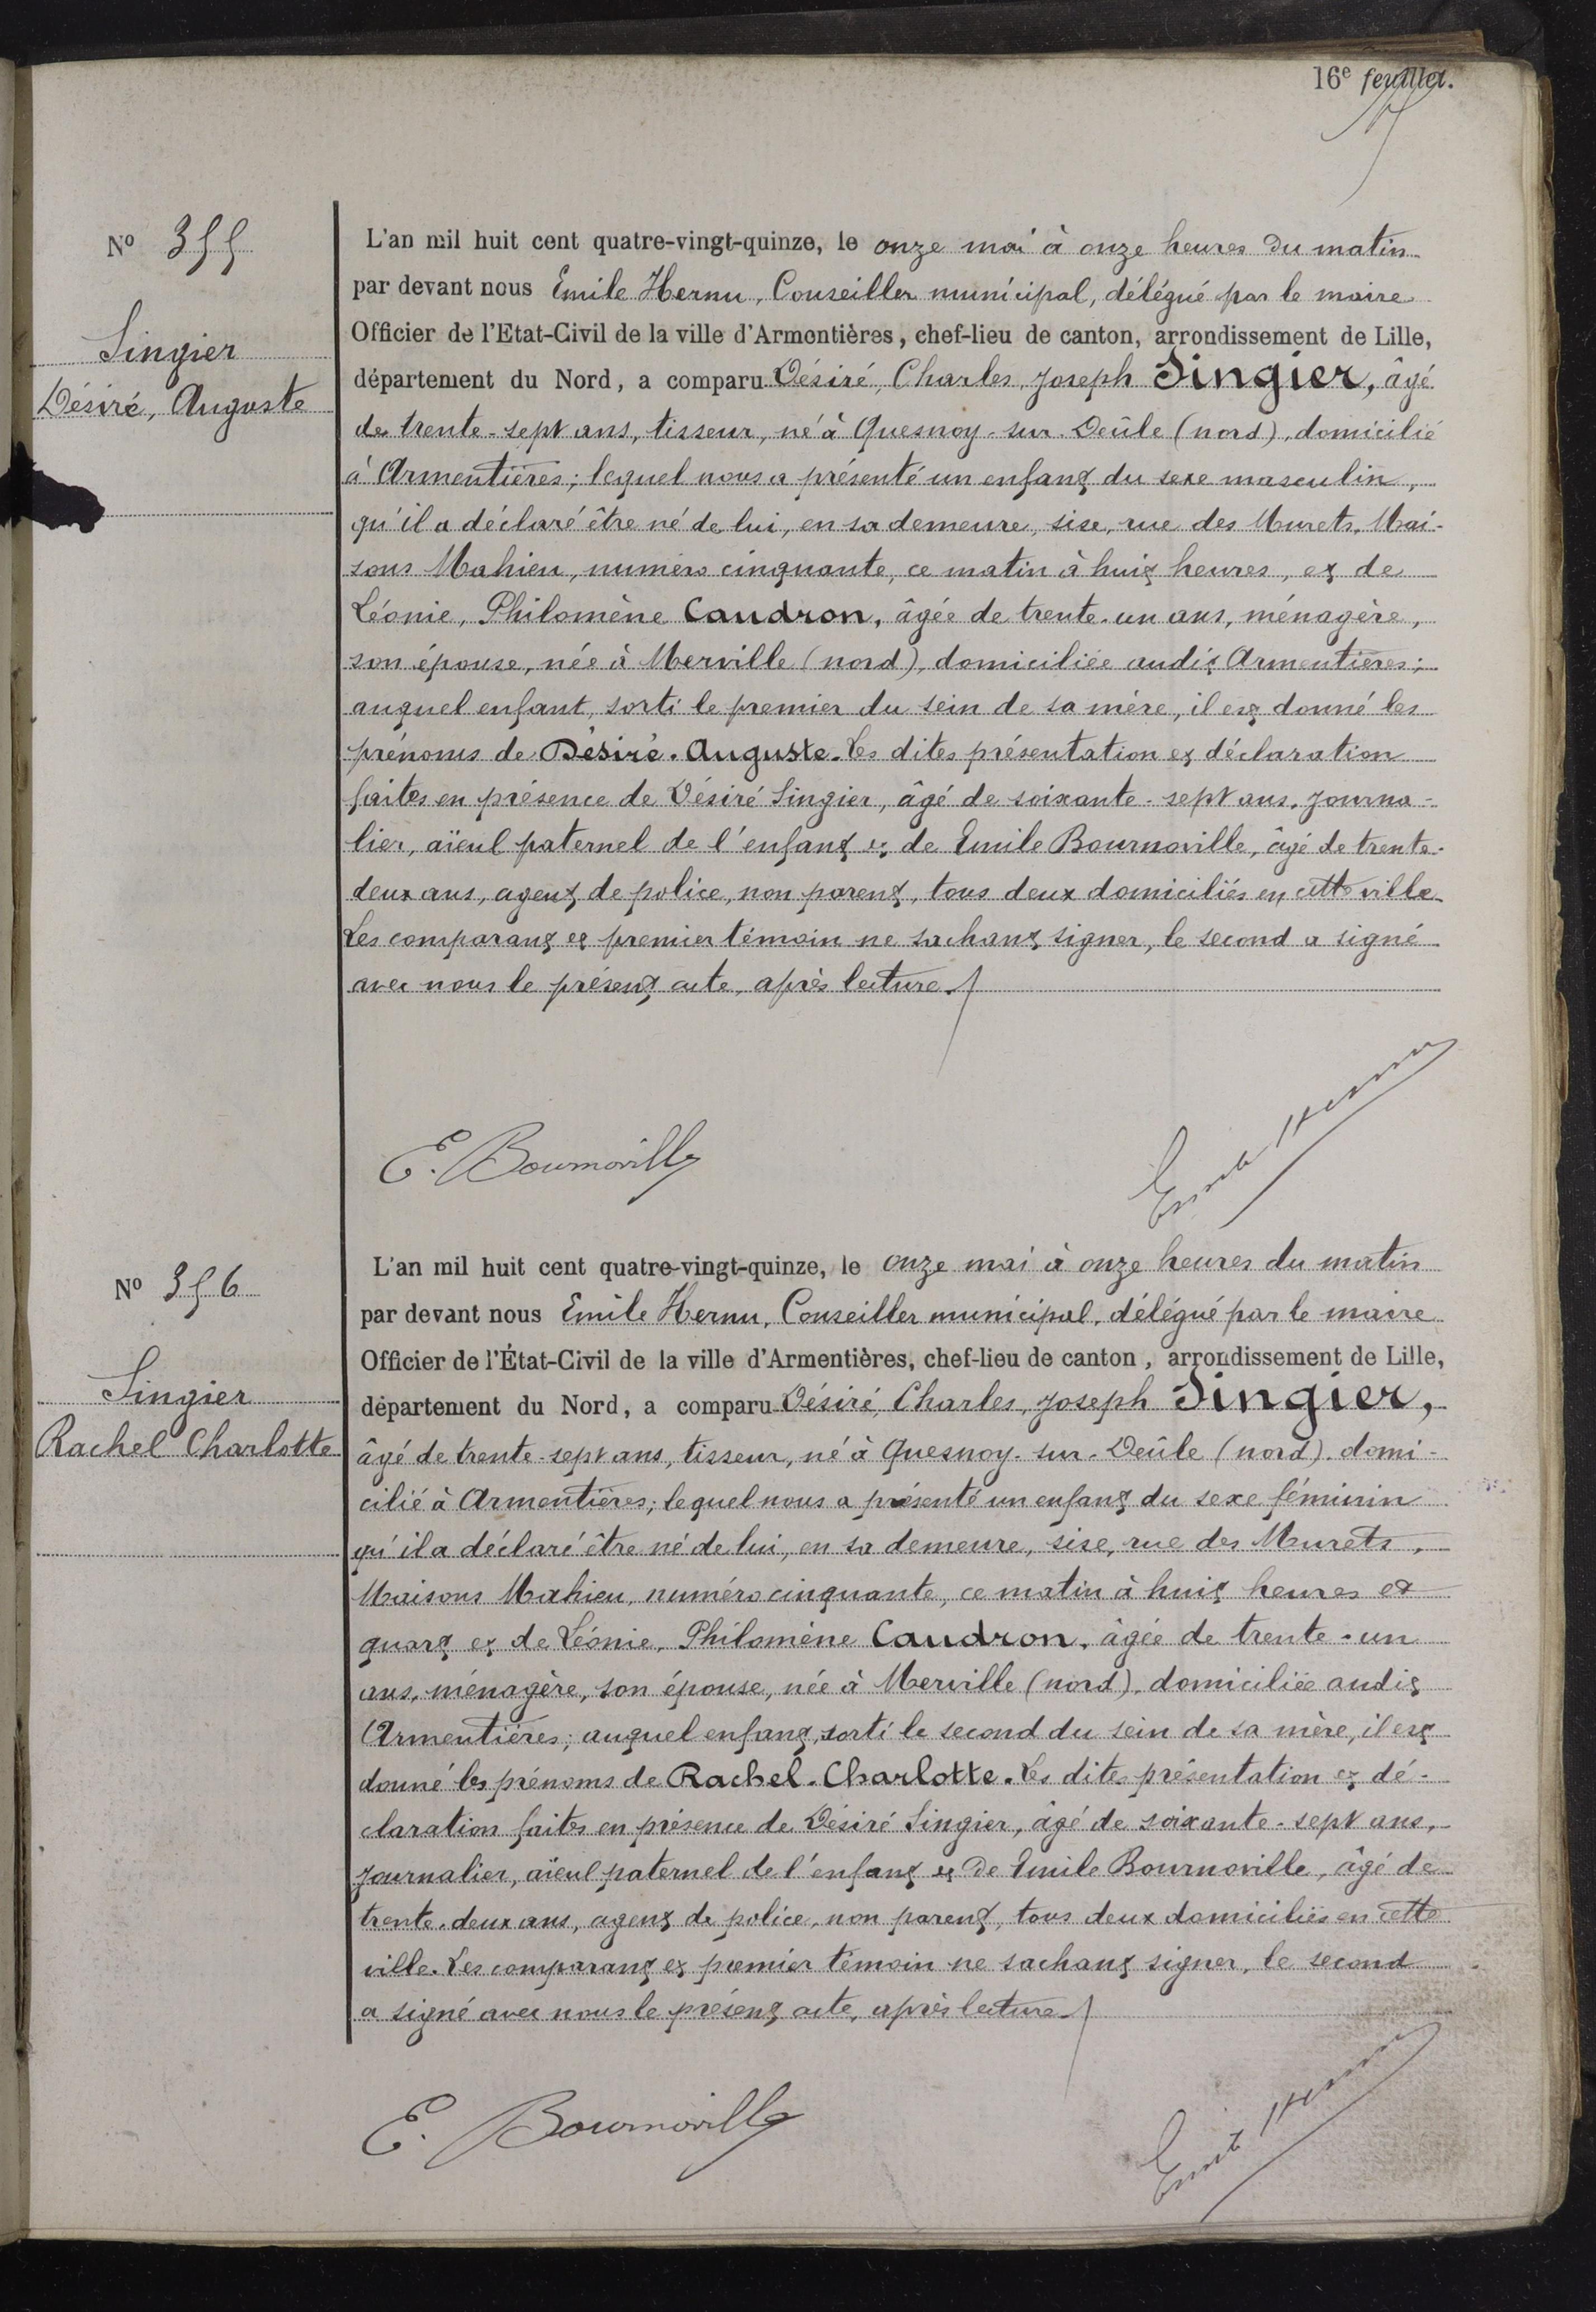 16e feuillet.
No 355
Singier
Désiré, Auguste
L'an mil huit cent quatre-vingt-quinze, le onze mai à onze heures du matin
par devant nous Emile Hernu, Conseiller municipal, délégué par le maire
Officier de l'Etat-Civil de la ville d'Armentières, chef-lieu de canton, arrondissement de Lille,
département du Nord, a comparu Désiré, Charles, Joseph Singier, âgé
de trente-sept ans, tisseur, né à Quesnoy-sur-Deûle (nord), domicilié
à Armentières; lequel nous a présenté un enfant du sexe masculin,
qu'il a déclaré être né de lui, en sa demeure, sise, rue des Murets, Mai-
sons Mahieu, numéro cinquante, ce matin à huit heures, et de
Léonie, Philomène Caudron, âgée de trente-un ans, ménagère,
son épouse, née à Merville (nord), domiciliée audit Armentières;
auquel enfant, sorti le premier du sein de sa mère, il est donné les
prénoms de Désiré. Auguste. Les dites présentation et déclaration
faites en présence de Désiré Singier, âgé de soixante-sept ans, journa-
lier, aïeul paternel de l'enfant et de Emile Bournoville, âgé de trente-
deux ans, agent de police, non parent, tous deux domiciliés en cette ville.
Les comparant et premier témoin ne sachant signer, le second a signé
avec nous le présent acte, après lecture.
E. Bournoville
Emile Hernu
No 356
Singier
Rachel Charlotte
L'an mil huit cent quatre-vingt-quinze, le onze mai à onze heures du matin
par devant nous Emile Hernu, Conseiller municipal, délégué par le maire
Officier de l'État-Civil de la ville d'Armentières, chef-lieu de canton, arrondissement de Lille,
département du Nord, a comparu Désiré, Charles, Joseph Singier,
âgé de trente-sept ans, tisseur, né à Quesnoy-sur-Deûle (nord), domi-
cilié à Armentières; lequel nous a présenté un enfant du sexe féminin
qu'il a déclaré être né de lui, en sa demeure, sise, rue des Murets,
Maisons Mahieu, numéro cinquante, ce matin à huit heures et
quart et de Léonie, Philomène Caudron, âgée de trente-un
ans, ménagère, son épouse, née à Merville (nord), domiciliée audit
Armentières; auquel enfant, sorti le second du sein de sa mère, il est
donné les prénoms de Rachel. Charlotte. Les dites présentation et dé-
claration faites en présence de Désiré Singier, âgé de soixante-sept ans,
journalier, aïeul paternel de l'enfant et de Emile Bournoville, âgé de
trente-deux ans, agent de police, non parent, tous deux domiciliés en cette
ville. Les comparant et premier témoin ne sachant signer, le second
a signé avec nous le présent acte, après lecture.
E. Bournoville
Emile Hernu